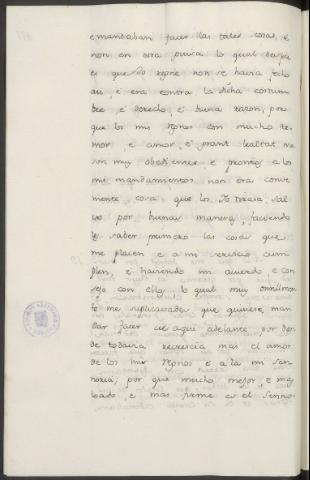 e mandaban facer las tales cosas, e
non en otra guisa lo qual despu
es que Yo regné non se havia fecho
asi, é era contra la dicha costum
bre é derecho, é buena razon, por
que los mis regnos con mucho te
mor e amor, é grant lealtat me
son muy obedientes e prontos a los
mis mandamientos non era conve
niente cosa que los Yo traxia, sal
vo por buenas maneras, faciendo
les saber primero las cosas que
me placen e a mi servicio cum
plen, e haviendo mi acuerdo e con
sejo con ellos, lo qual muy omilmen
te me suplicavades que quisiere man
dar facer de aqui adelante, por don
de todavia recrescia mas el amor
de los mis regnos e a la mi sen
noria, por que mucho mejor, e mas
loado e mas firme es el senno-